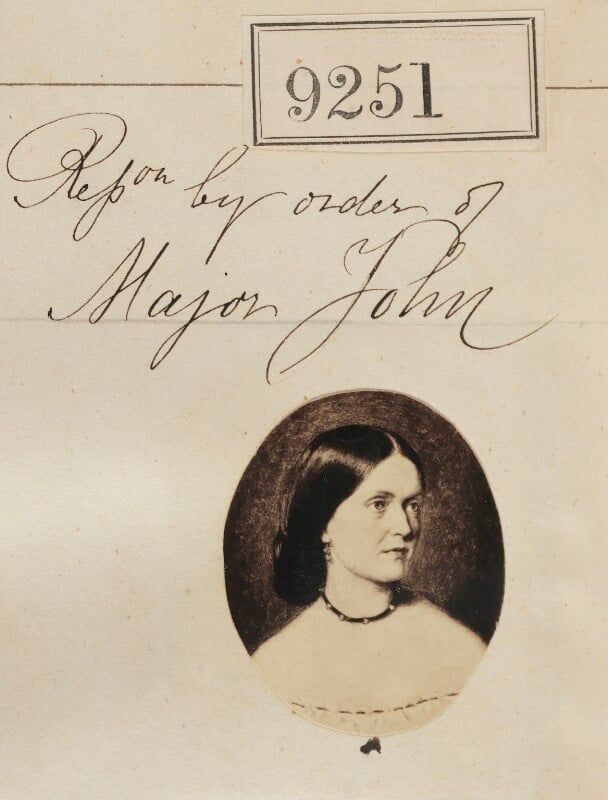 9251
Repon by order of
Major John